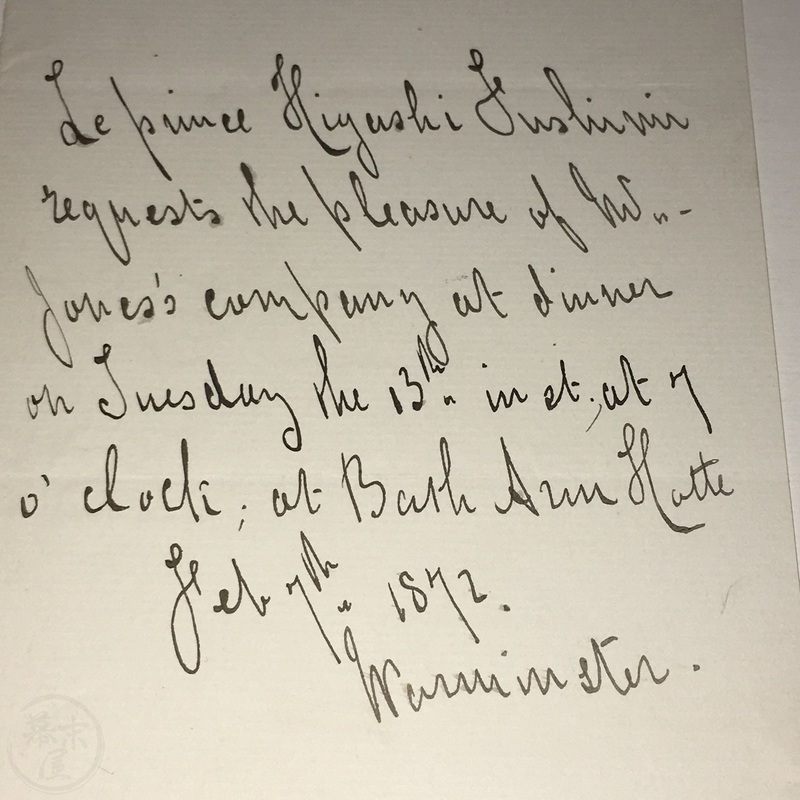 Le prince Higashi Fushimi
requests the pleasure of Mr. -
Jones's company at dinner
on Tuesday the 13th inst; at 7
o'clock; at Bath Arm Hotte
Feb 7th 1872.
Warminster.
幕末屋